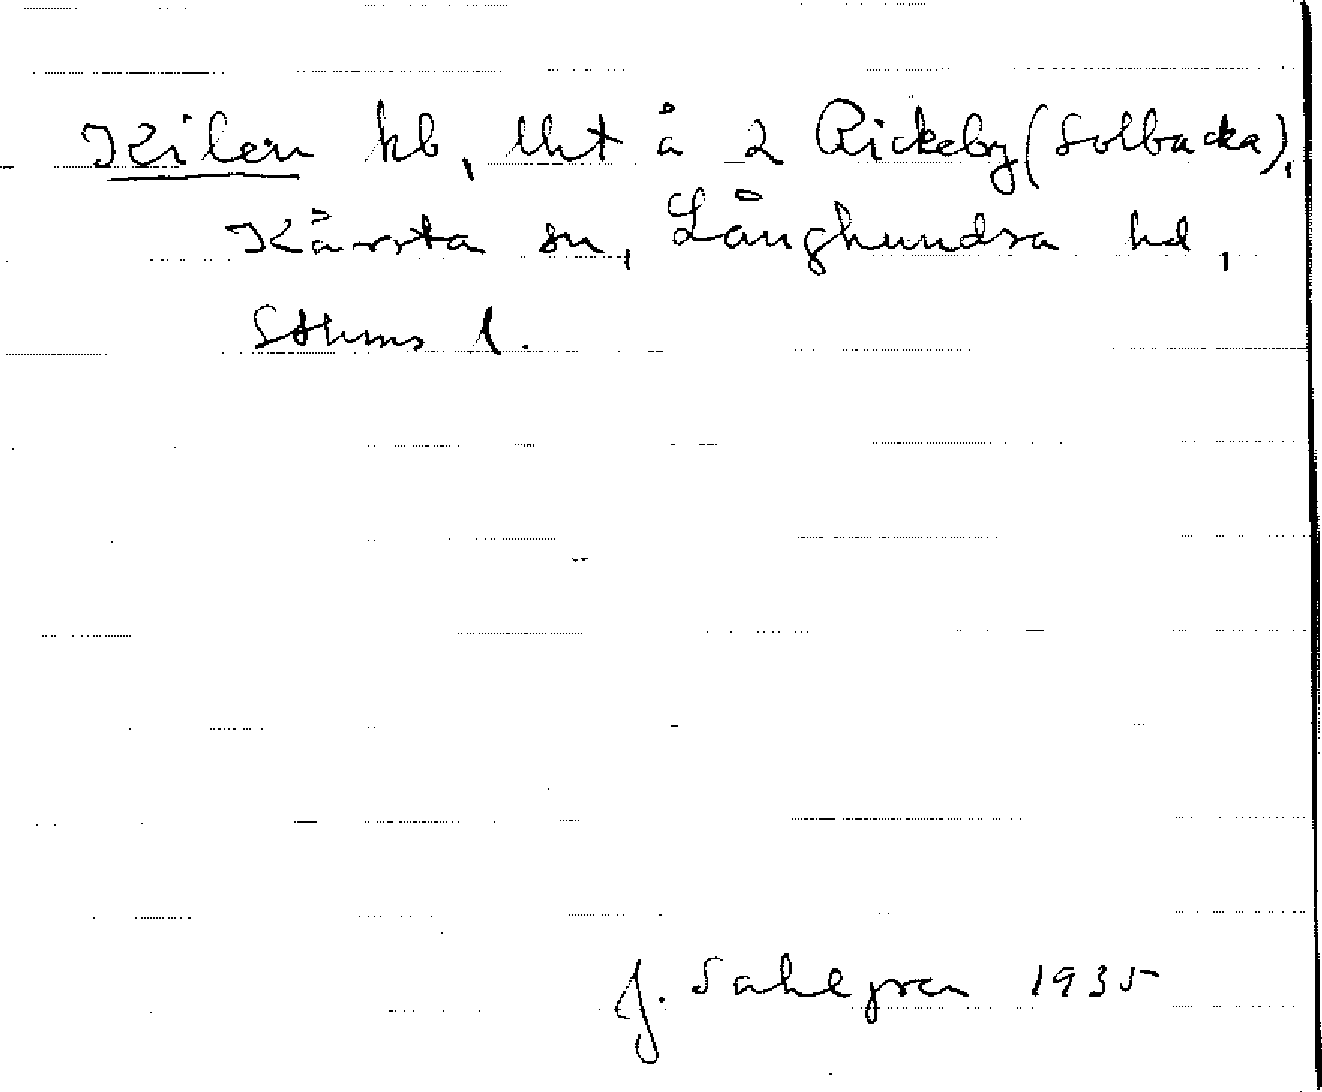 Kilen hb, lht å 2 Rickeby (Solbacka),
Kårsta sn, Långhundra hd,
Sthms l.
J. Sahlgren 1935